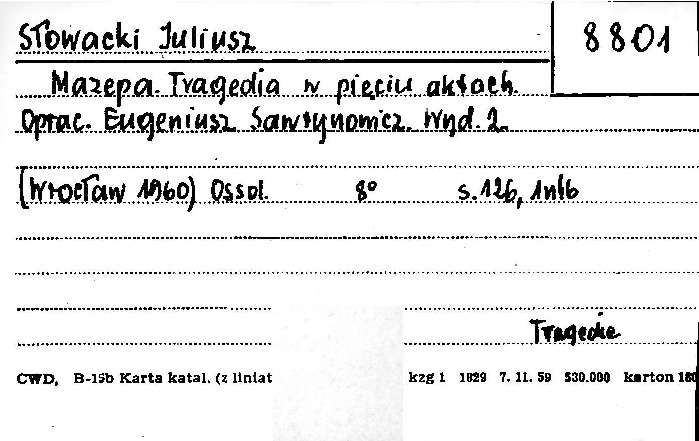 Słowacki Juliusz
8801
Mazepa. Tragedia w pięciu aktach.
Oprac. Eugeniusz Sawrynowicz. Wyd. 2.
(Wrocław 1960) Ossol. 8° s. 126, 1nlb
Tragedie
CWD, B-15b Karta katal. (z liniat kzg 1 1829 7. 11. 59 530.000 karton 180